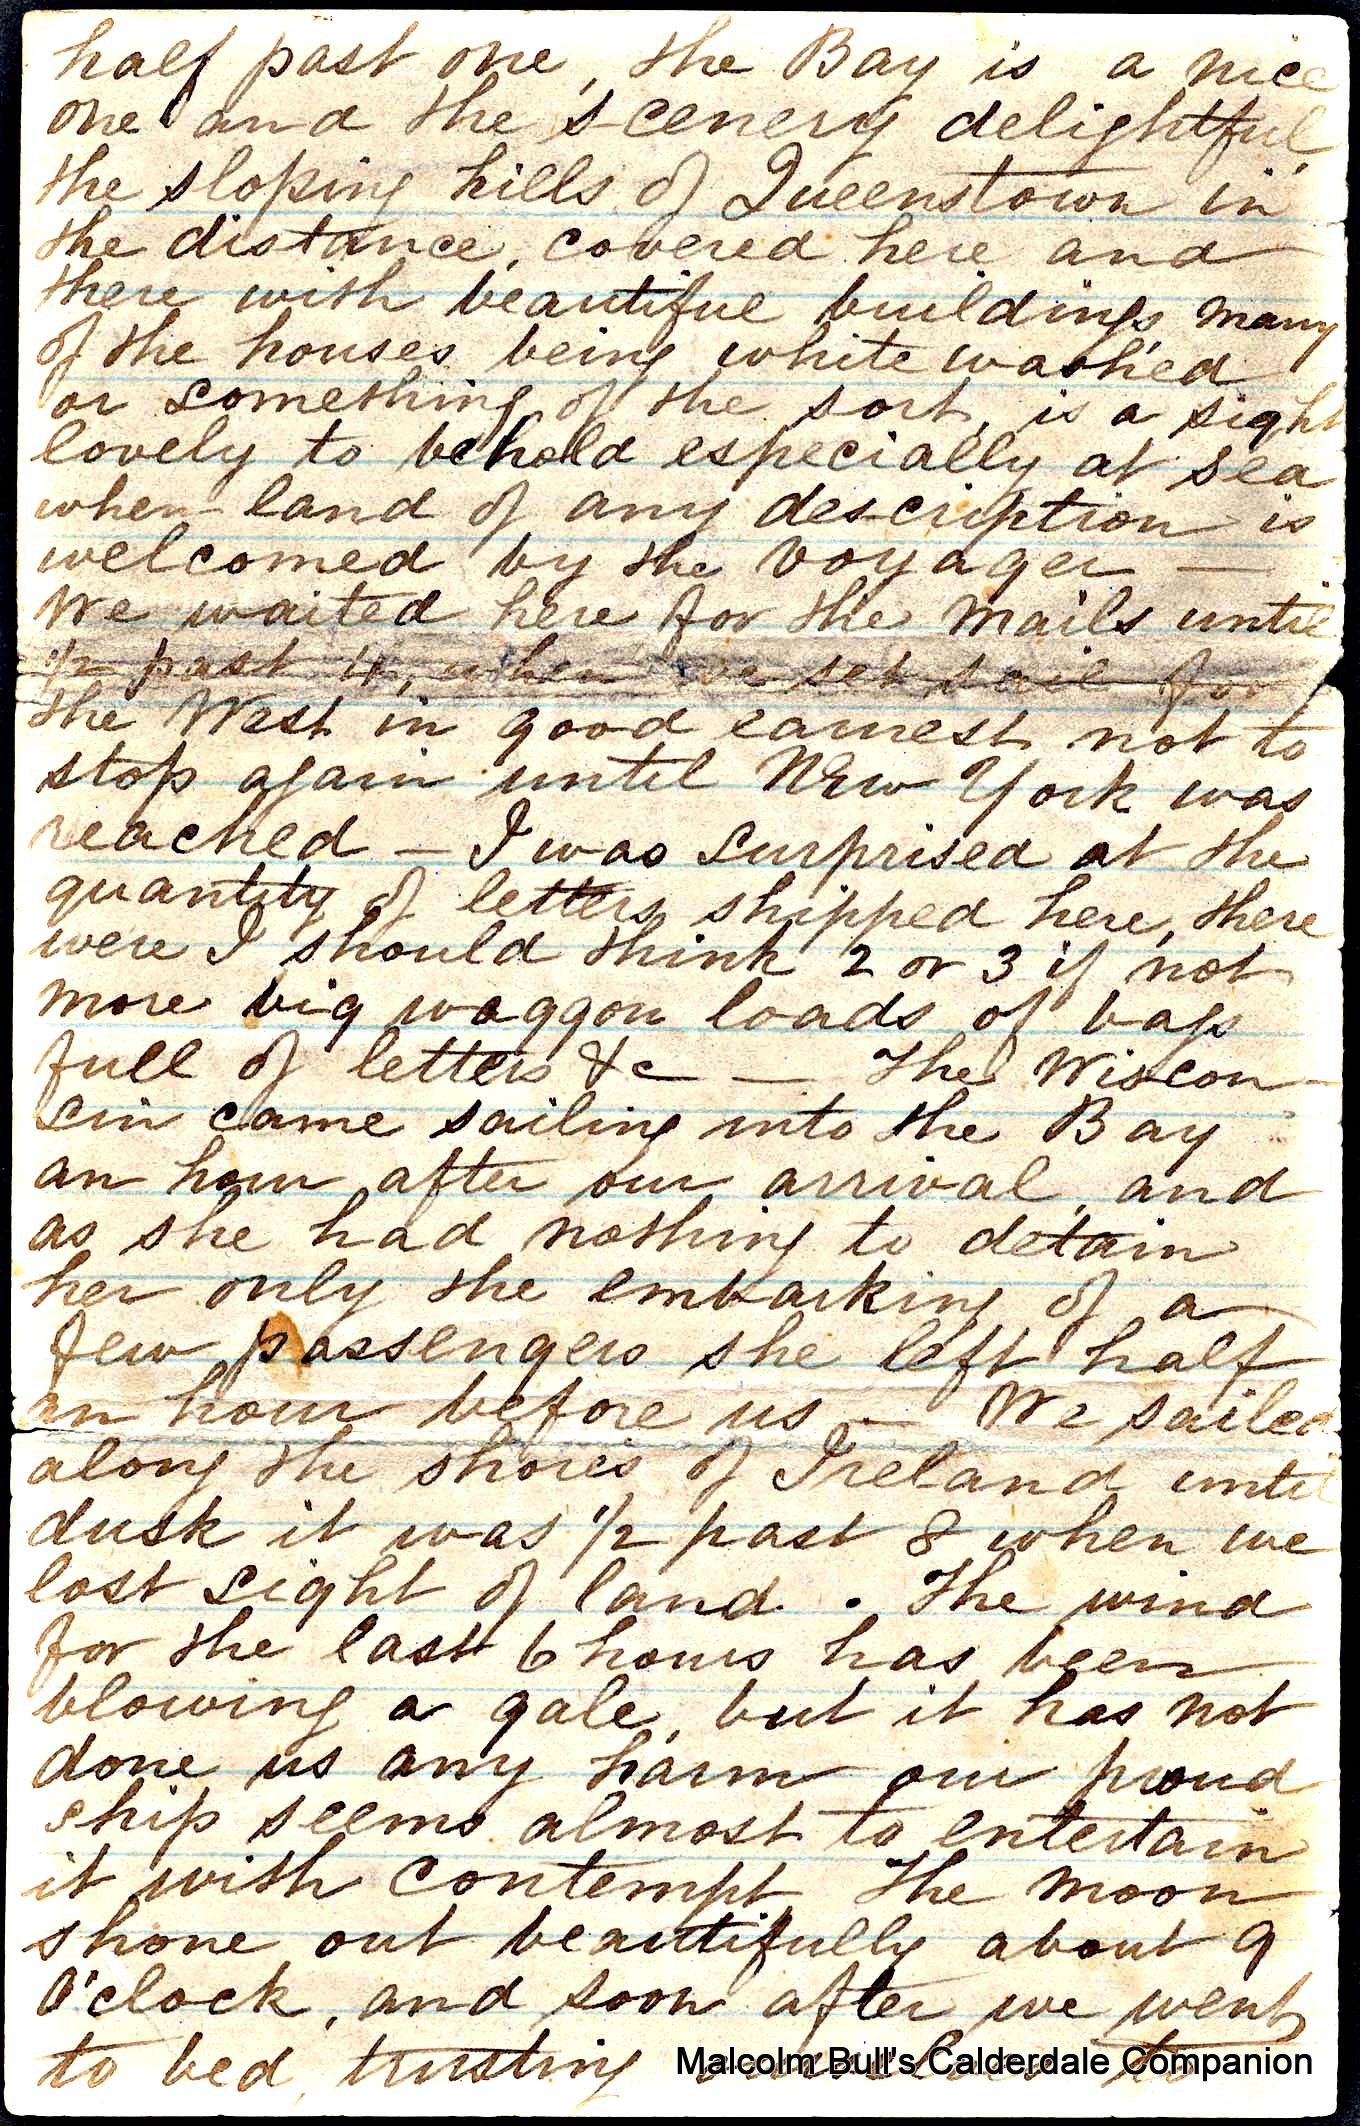 half past one, the Bay is a nice
one and the scenery delightful,
the sloping hills of Queenstown in
the distance, covered here and
there with beautiful buildings many
of the houses being white washed
or something of the sort, is a sight
lovely to behold especially at sea
when land of any description is
welcomed by the voyager —
We waited here for the mails until
1/2 past 4, when we set sail for
the West in good earnest not to
stop again until New York was
reached — I was surprised at the
quantity of letters shipped here, there
were I should think 2 or 3 if not
more big waggon loads of bags
full of letters &c — The Wiscon-
sin came sailing into the Bay
an hour after our arrival, and
as she had nothing to detain
her only the embarking of a
few passengers she left half
an hour before us — We sailed
along the shores of Ireland until
dusk it was 1/2 past 8 when we
lost sight of land. The wind
for the last 6 hours has been
blowing a gale, but it has not
done us any harm our proud
ship seems almost to entertain
it with contempt, The moon
shone out beautifully about 9
O'clock, and soon after we went
to bed, trusting to
Malcolm Bull's Calderdale Companion